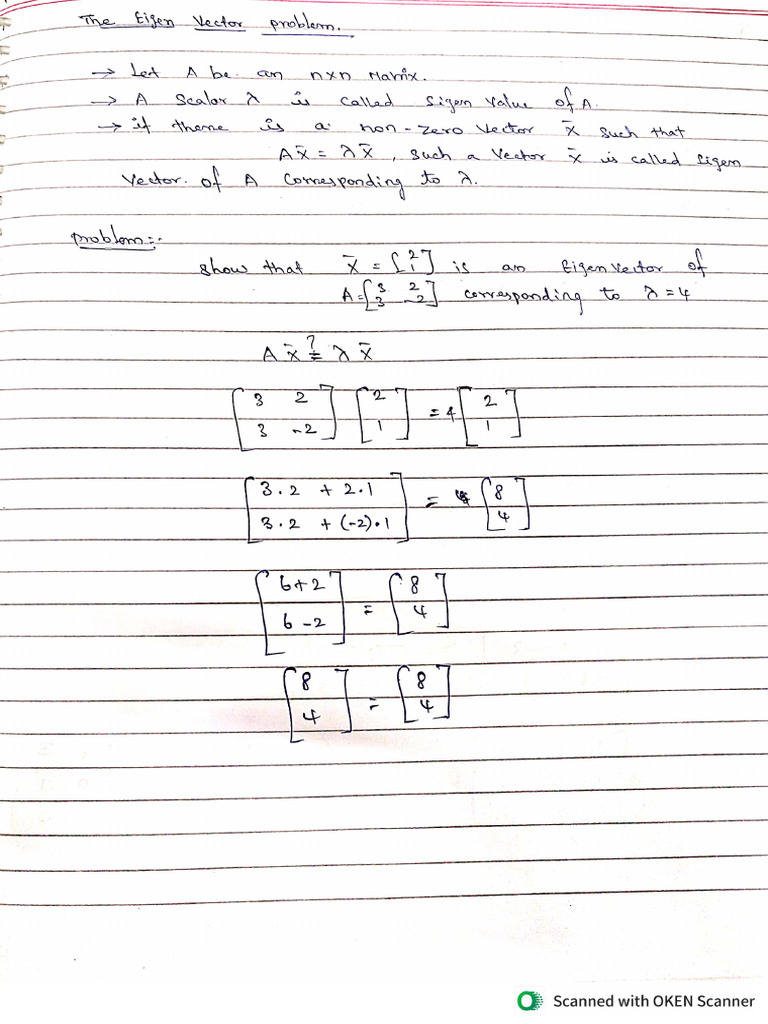 The Eigen Vector problem.
→ Let A be an n×n Matrix.
→ A Scalar λ is called Eigen Value of A.
→ if there is a non-zero Vector x̄ such that
Ax̄ = λx̄, such a Vector x̄ is called Eigen
Vector. of A Corresponding to λ.
problem:-
show that x̄ = [2 1] is an Eigen Vector of
A = [3 2 3 -2] corresponding to λ = 4
A x̄ ?= λ x̄
[3 2] [2] = 4 [2]
[3 -2] [1] [1]
[3·2 + 2·1] = [8]
[3·2 + (-2)·1] [4]
[6+2] = [8]
[6-2] [4]
[8] = [8]
[4] [4]
Scanned with OKEN Scanner